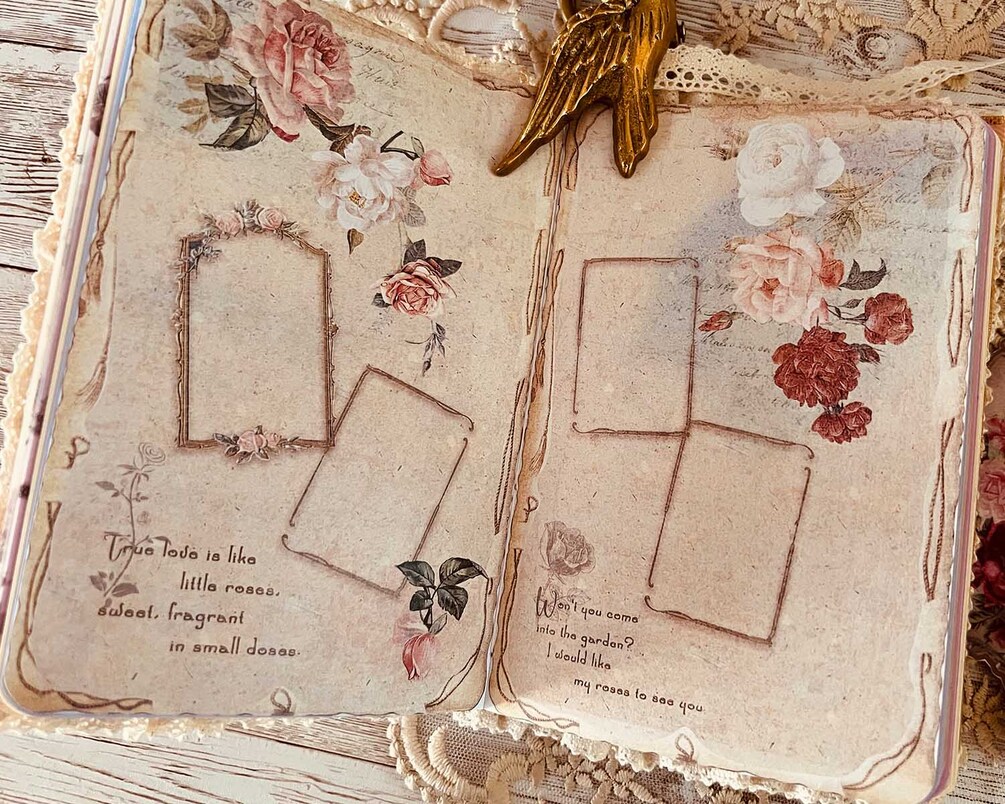 True love is like
little roses,
sweet, fragrant
in small doses.
Won't you come
into the garden?
I would like
my roses to see you.